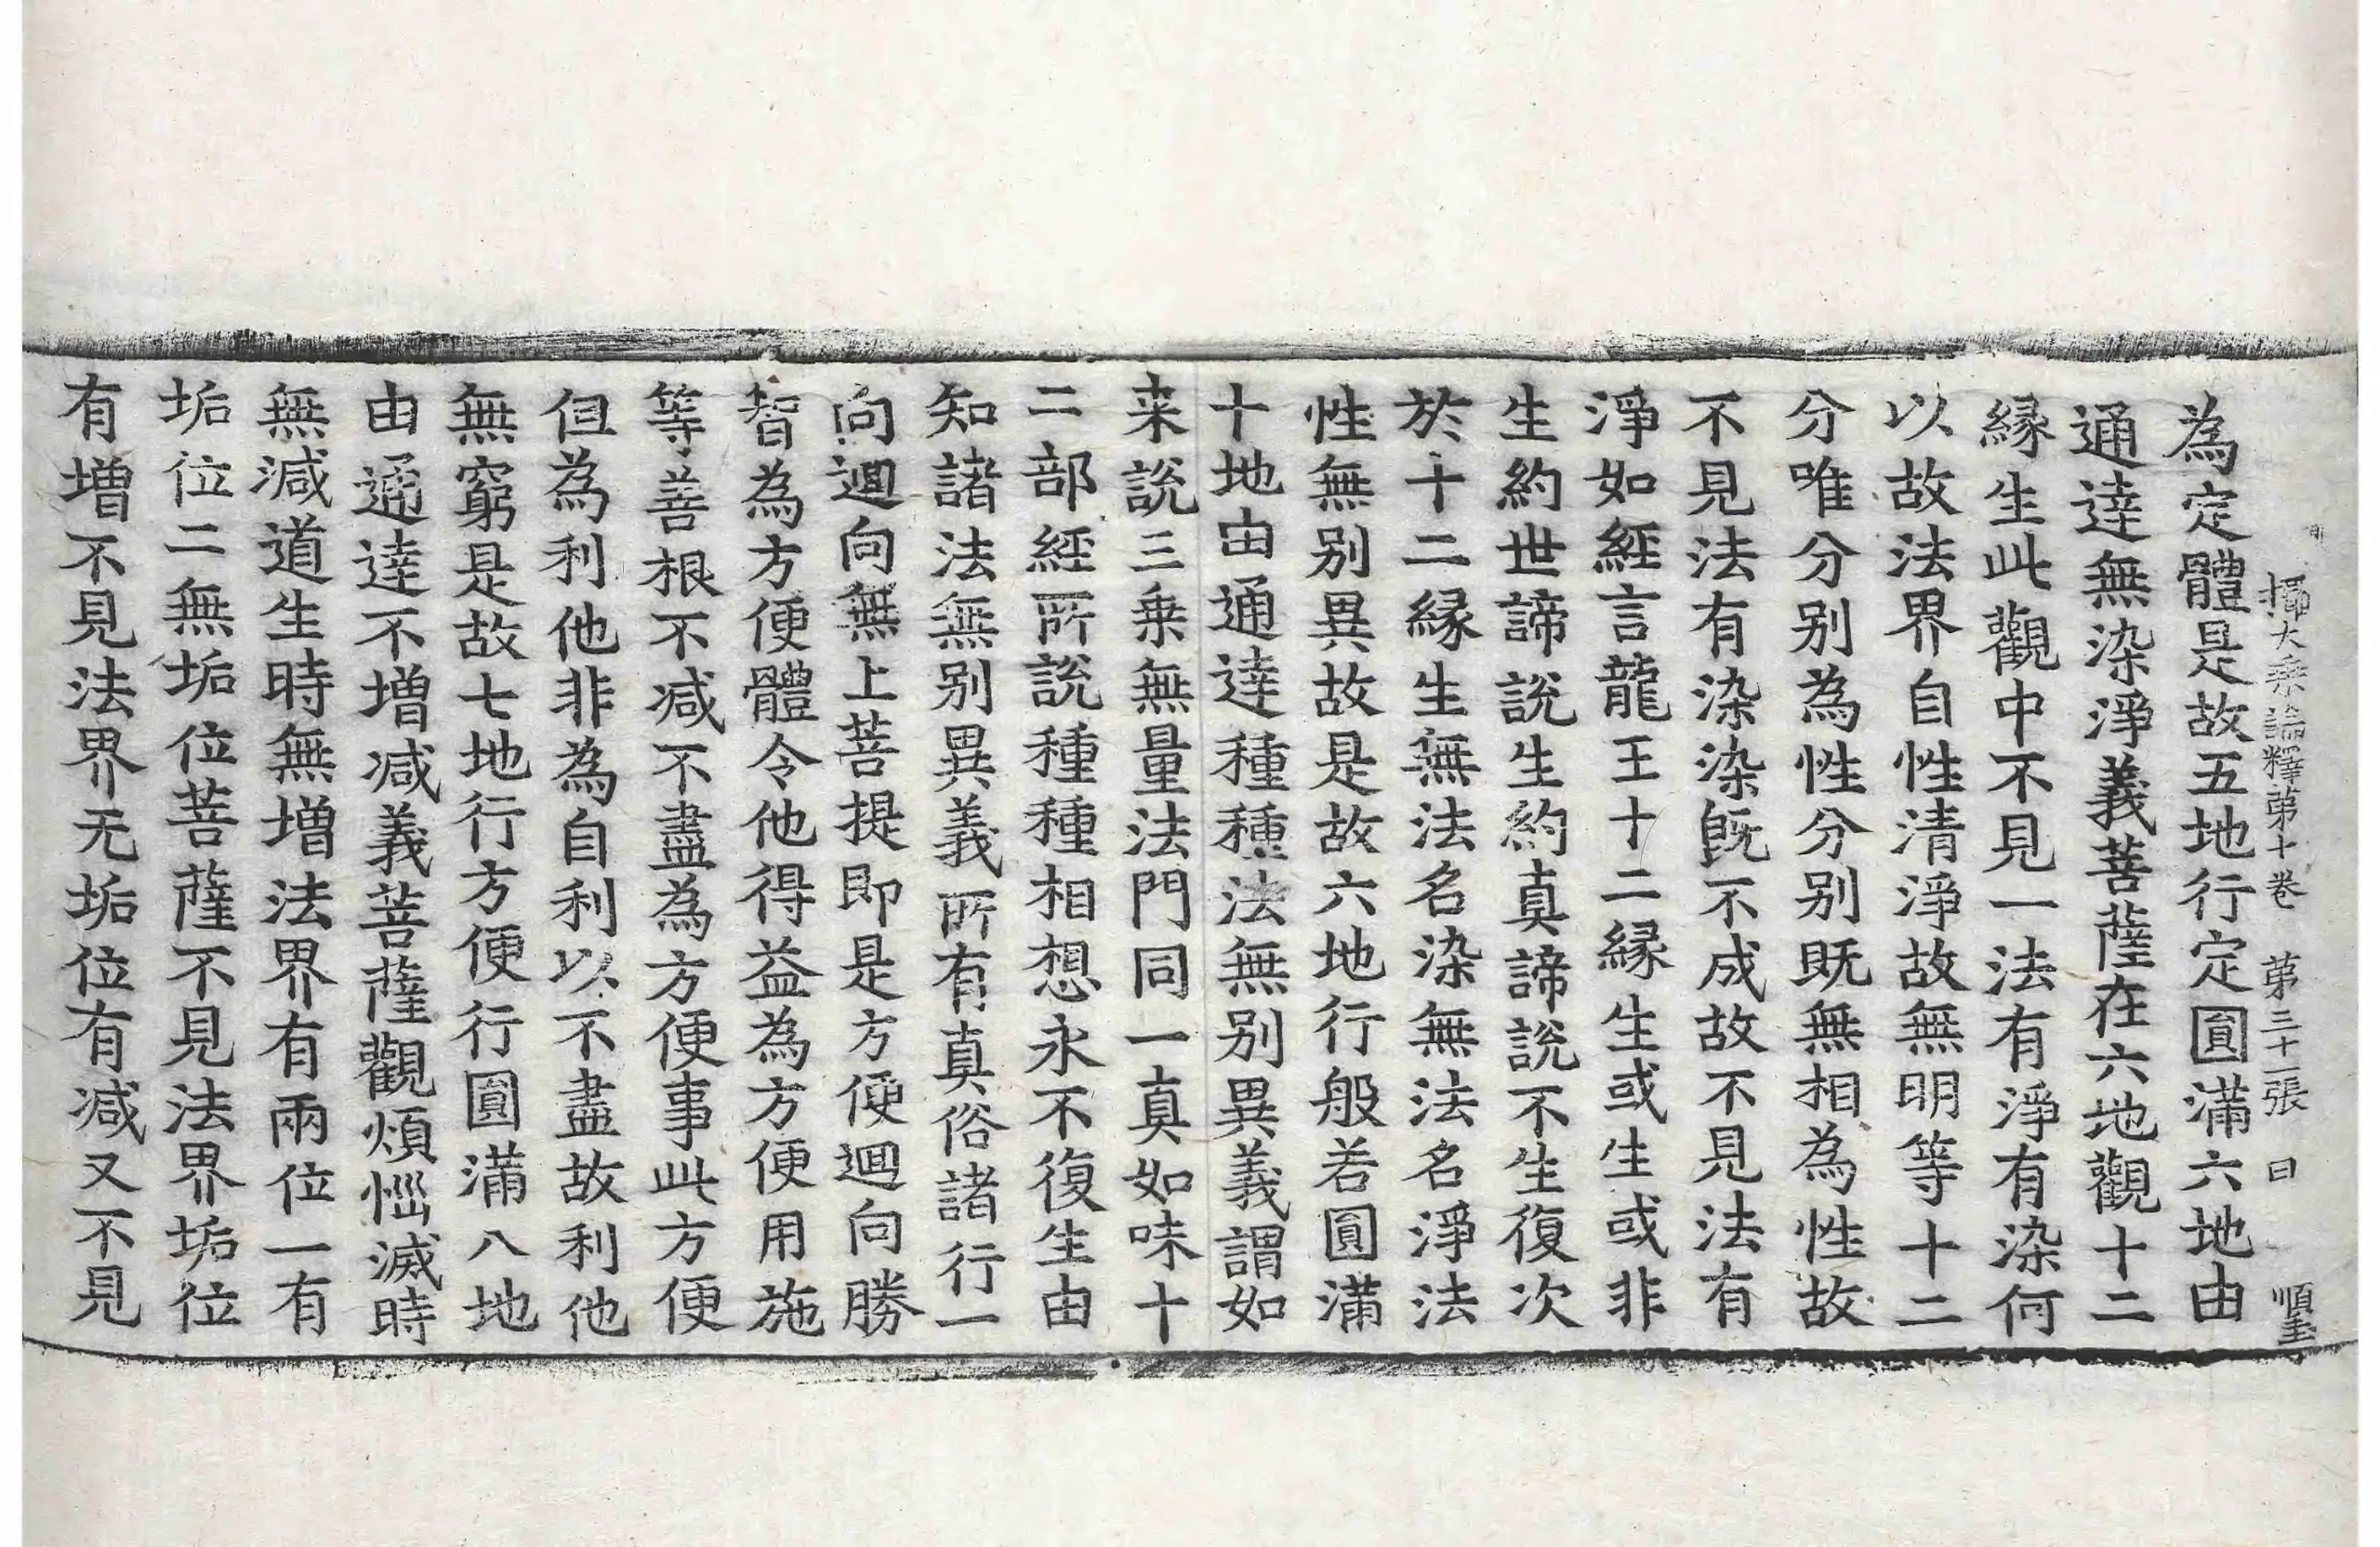 攝大乗論釋第十卷 第三十一張 曰 順𡔈
為定體是故五地行定圓滿六地由
通達無染淨義菩薩在六地觀十二
縁生此觀中不見一法有淨有染何
以故法界自性清淨故無明等十二
分唯分别為性分别既無相為性故
不見法有染染旣不成故不見法有
淨如經言龍王十二縁生或生或非
生約世諦説生約真諦説不生復次
於十二縁生無法名染無法名淨法
性無别異故是故六地行般若圓滿
十地由通達種種法無别異義謂如
来説三乗無量法門同一真如味十
二部經所説種種相想永不復生由
知諸法無别異義所有真俗諸行一
向迴向無上菩提即是方便迴向勝
智為方便體令他得益為方便用施
等善根不减不盡為方便事此方便
但為利他非為自利以不盡故利他
無窮是故七地行方便行圓滿八地
由通達不增减義菩薩觀煩惱滅時
無減道生時無增法界有兩位一有
垢位二無垢位菩薩不見法界垢位
有增不見法界无垢位有减又不見